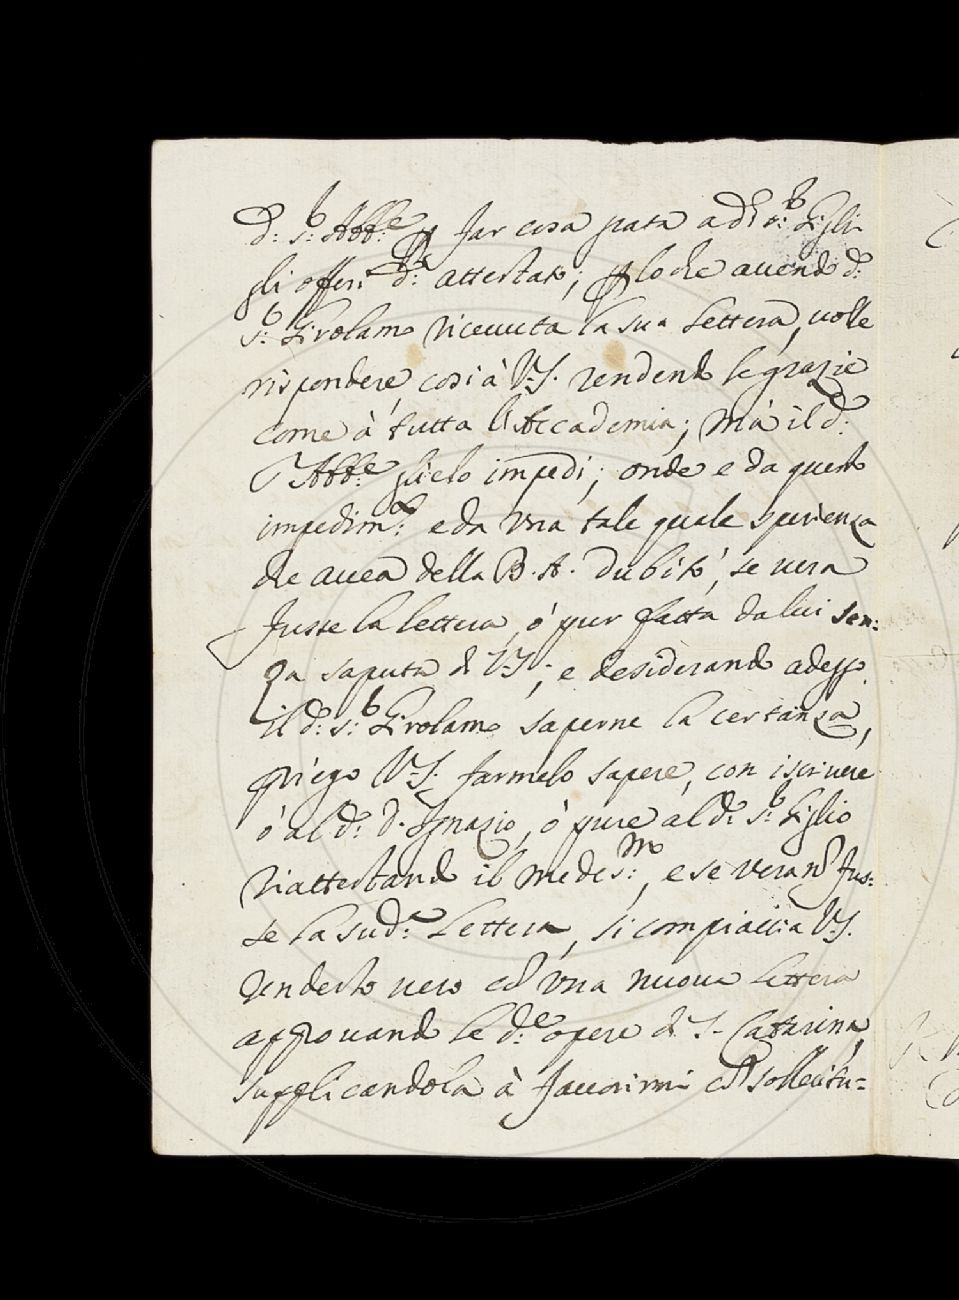 d: s:r Abb:e p far cosa grata a d:o s:r Gigli
gli offerì d: attestato; p lo che avendo d:
s:r Girolamo ricevuta la sua lettera, volle
rispondere, così à V.S. rendendo le grazie
come à tutta l'Accademia; mà il d:
Abb:e glielo impedì; onde e da questo
impedim:o e da una tale quale sperienza
che avea della B. A. dubitò, se vera
fusse la lettera, ò pur fatta da lui sen:
za saputa di V.S.; e desiderando adesso
il d: s:r Girolamo saperne la certanza,
priego V.S. farmelo sapere, con iscrivere
ò al d: D. Ignazio, ò pure al d: s:r Giglio
riattestando il medes:mo, e se vera nõ fus:
se la sud:a lettera, si compiaccia V.S.
renderlo vero cõ una nuova lettera
approvando le d:e opere di S. Catarina,
supplicandola à favorirmi cõ sollecitu=